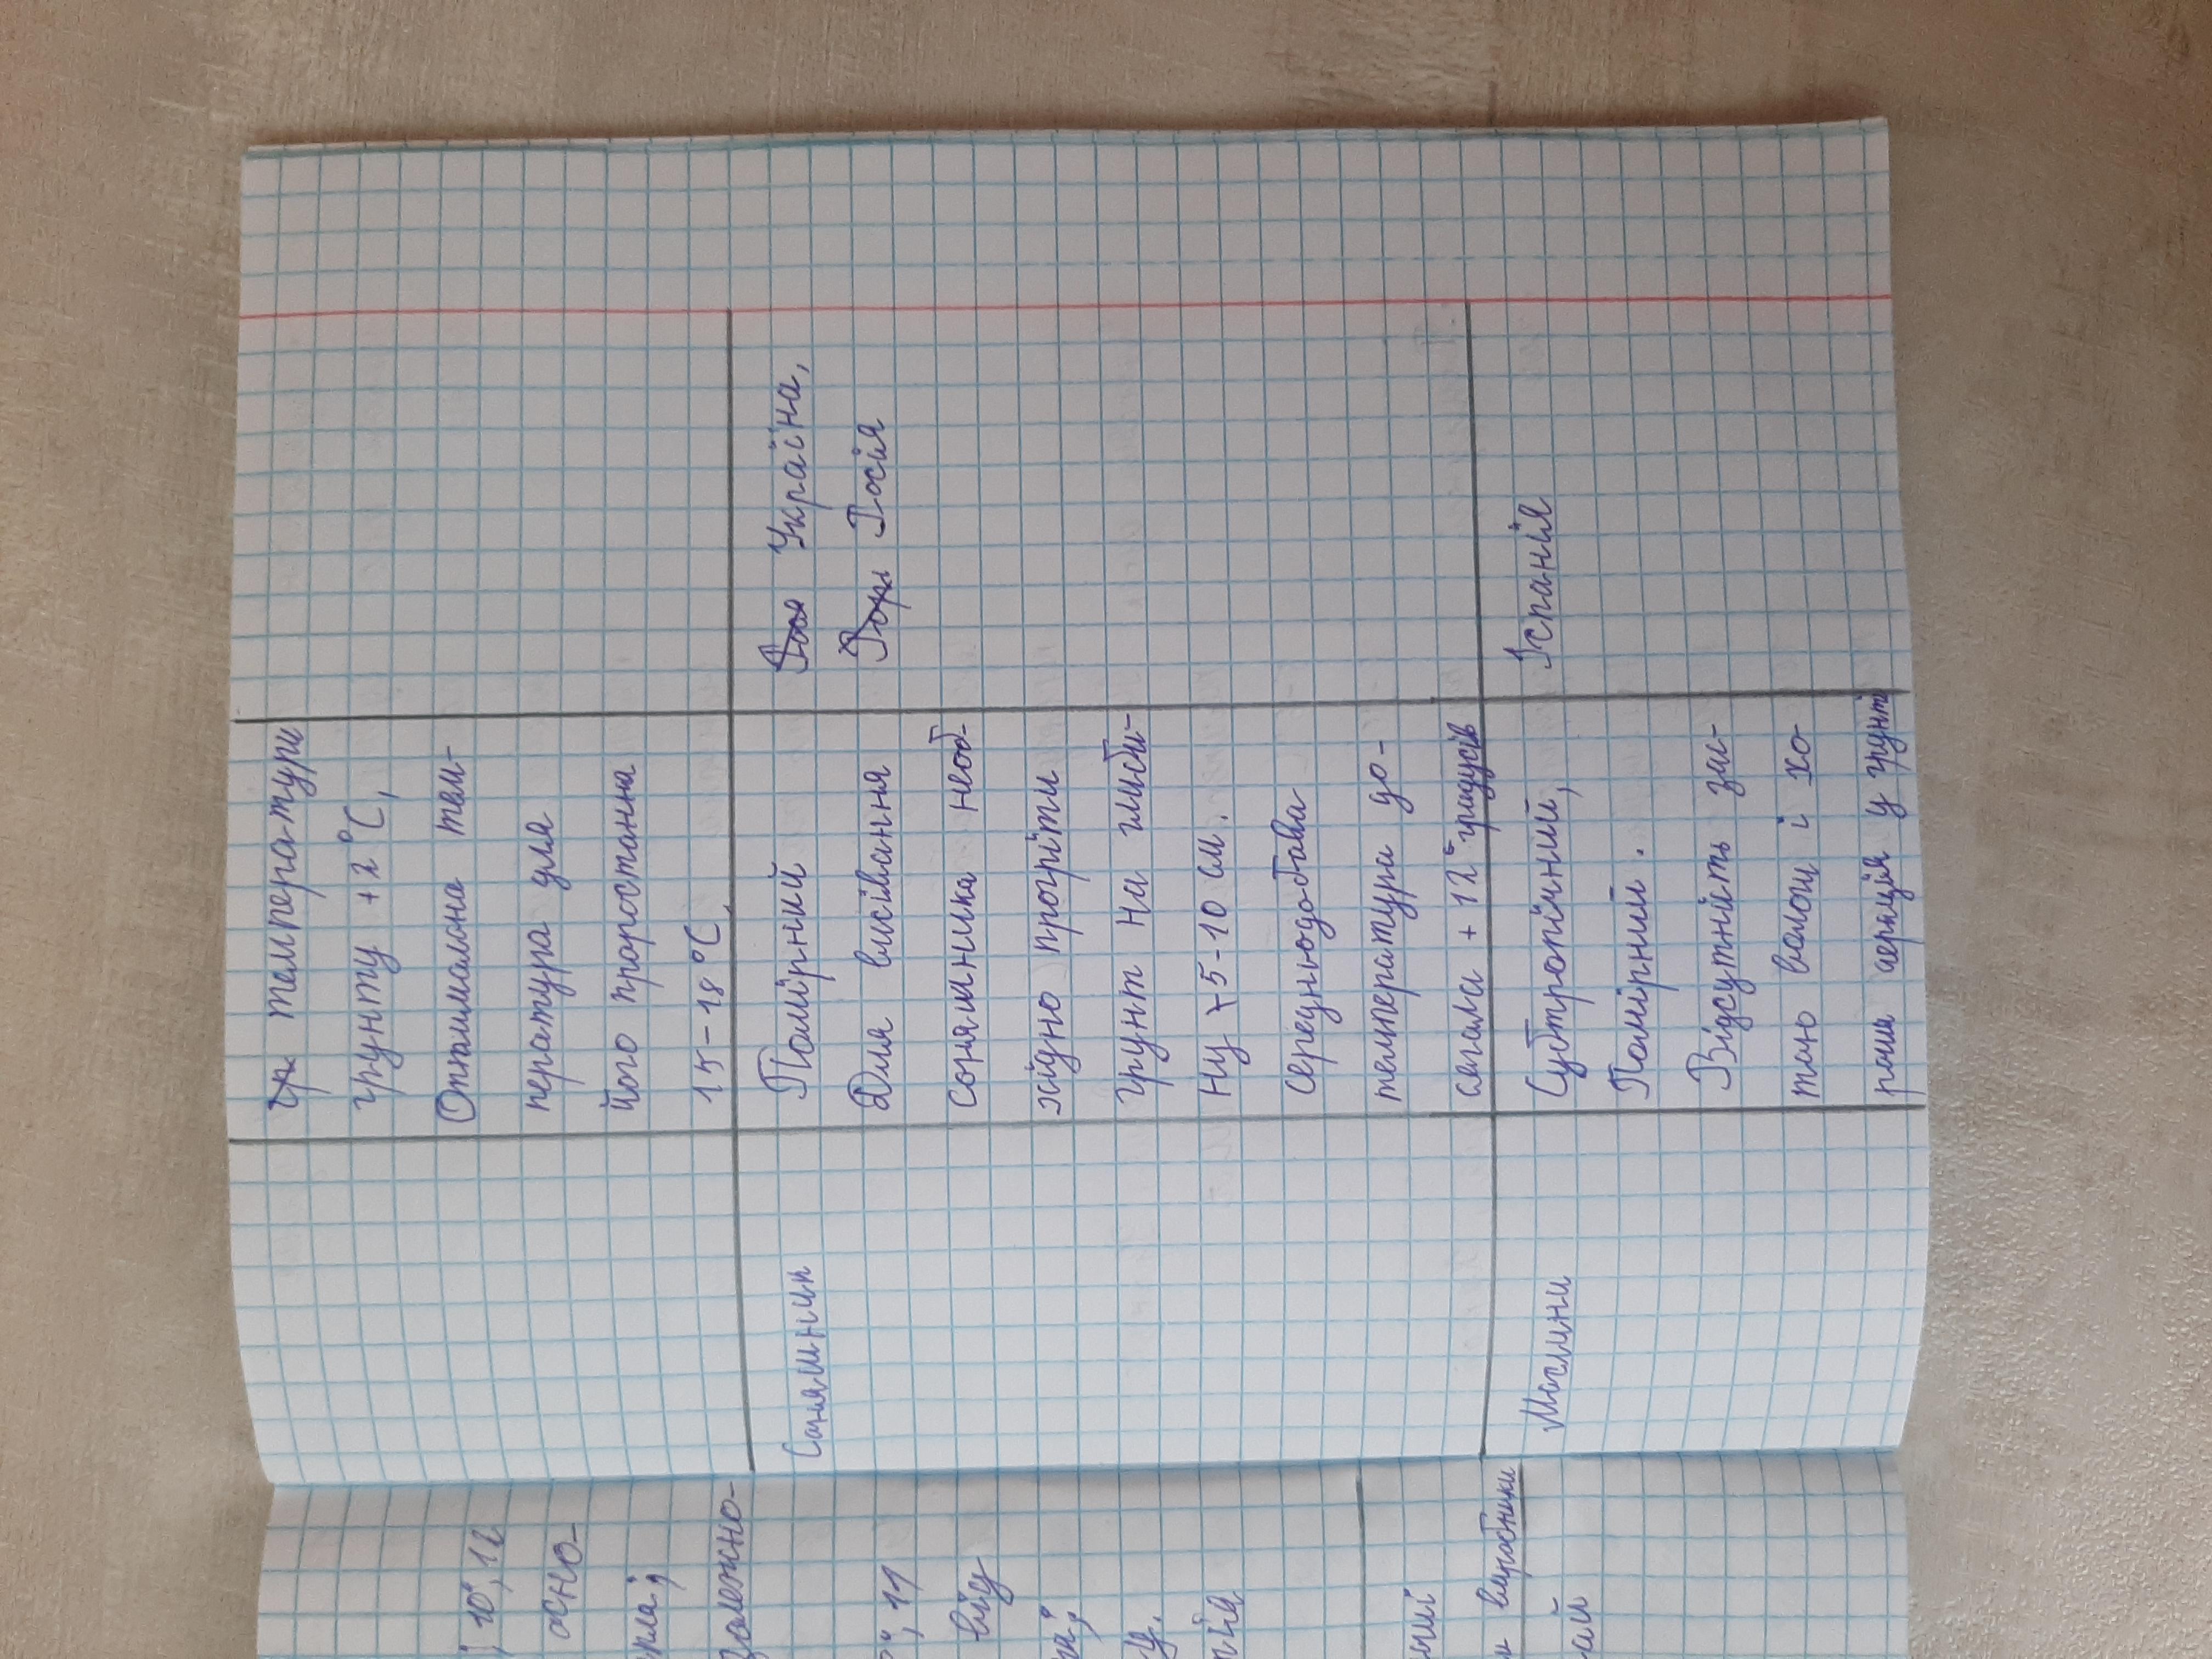 температури
грунту +2°C,
Оптимальна тем-
пература для
його проростання
15-18°C.
Соняшник
Помірний
Для висівання
соняшника необ-
хідно прогріти
грунт на глиби-
ну 5-10 см.
Середньодобова
температура до-
сягала +12° градусів
Україна,
Росія
Маслини
Субтропічний,
Помірний.
Відсутність зас-
тою вологи і хо-
роша аерація у грунті
Іспанія
10°, 12
осно-
залежно-
11
від
виробники